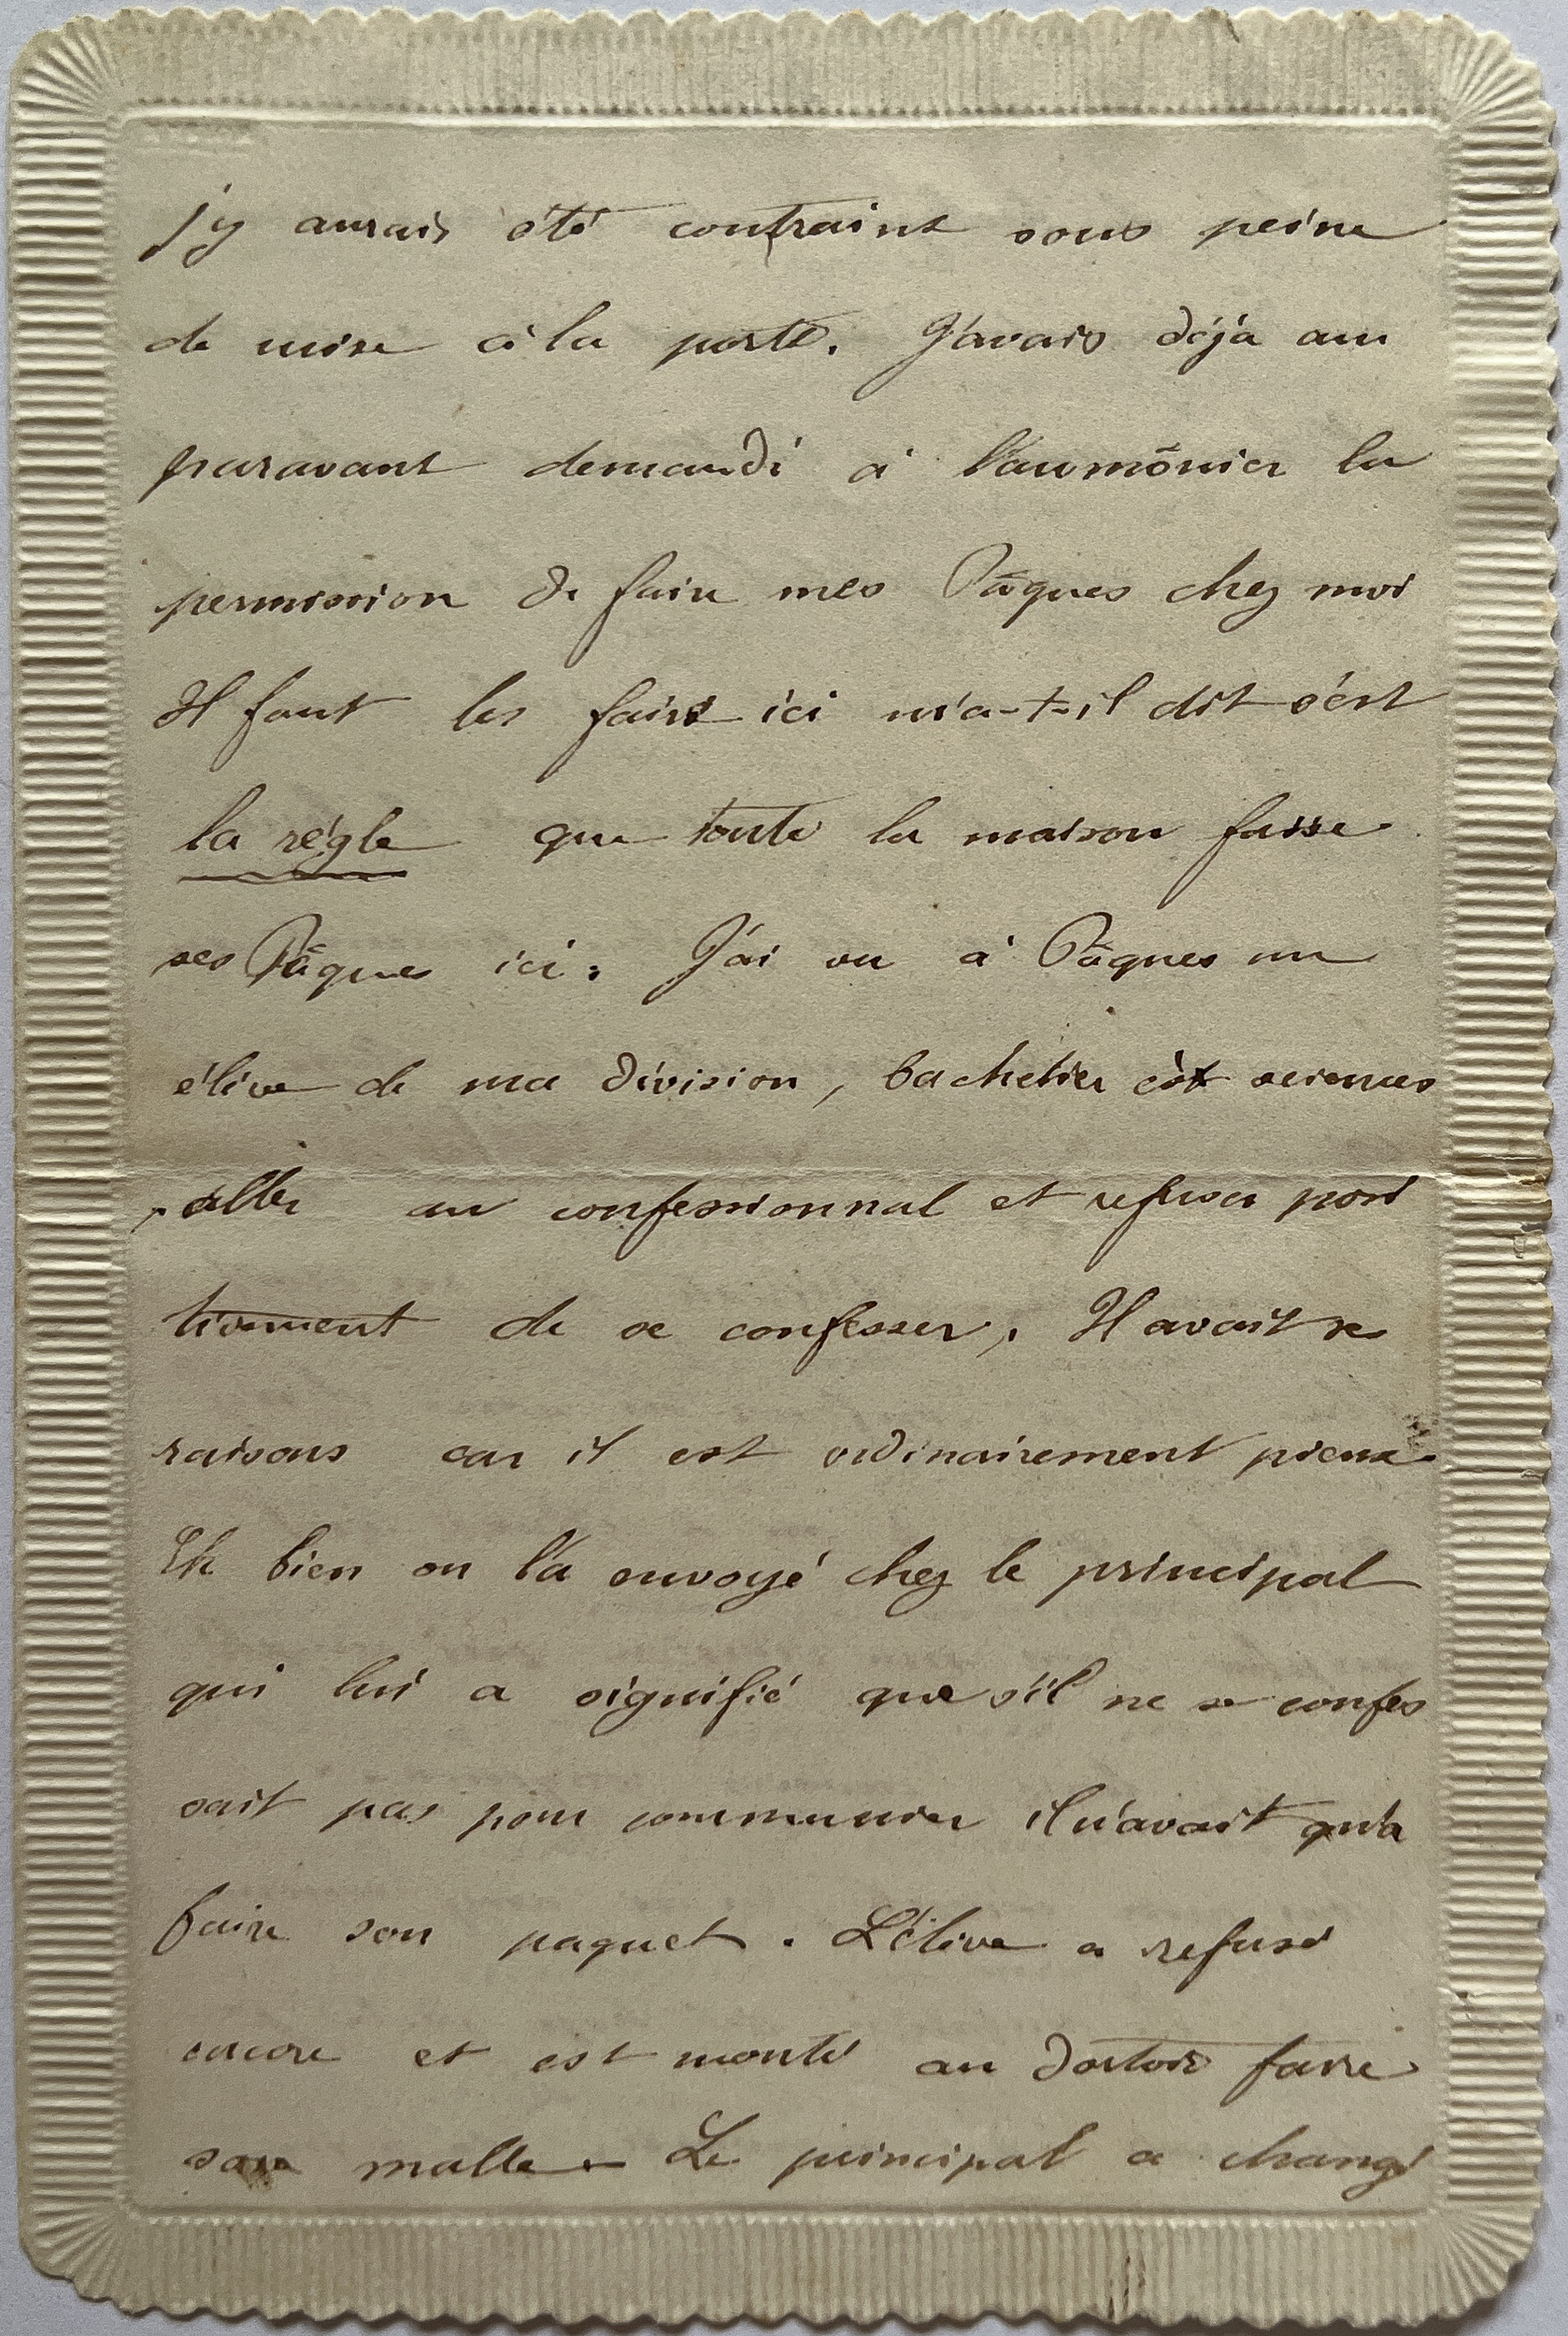 j'y aurais été contraint sous peine
de mise à la porte. J'avais déjà au
paravant demandé à l'aumônier la
permission de faire mes Pâques chez moi
Il faut les faire ici m'a-t-il dit c'est
la règle que toute la maison fasse
ses Pâques ici. J'ai vu à Pâques un
élève de ma division, bachelier ès sciences
aller au confessionnal et refuser posi
tivement de se confesser. Il avait ses
raisons car il est ordinairement pieux.
Eh bien on l'a envoyé chez le principal
qui lui a signifié que s'il ne se confes
sait pas pour communier il n'avait qu'à
faire son paquet. L'élève a refusé
encore et est monté au dortoir faire
sa malle - Le principal a changé